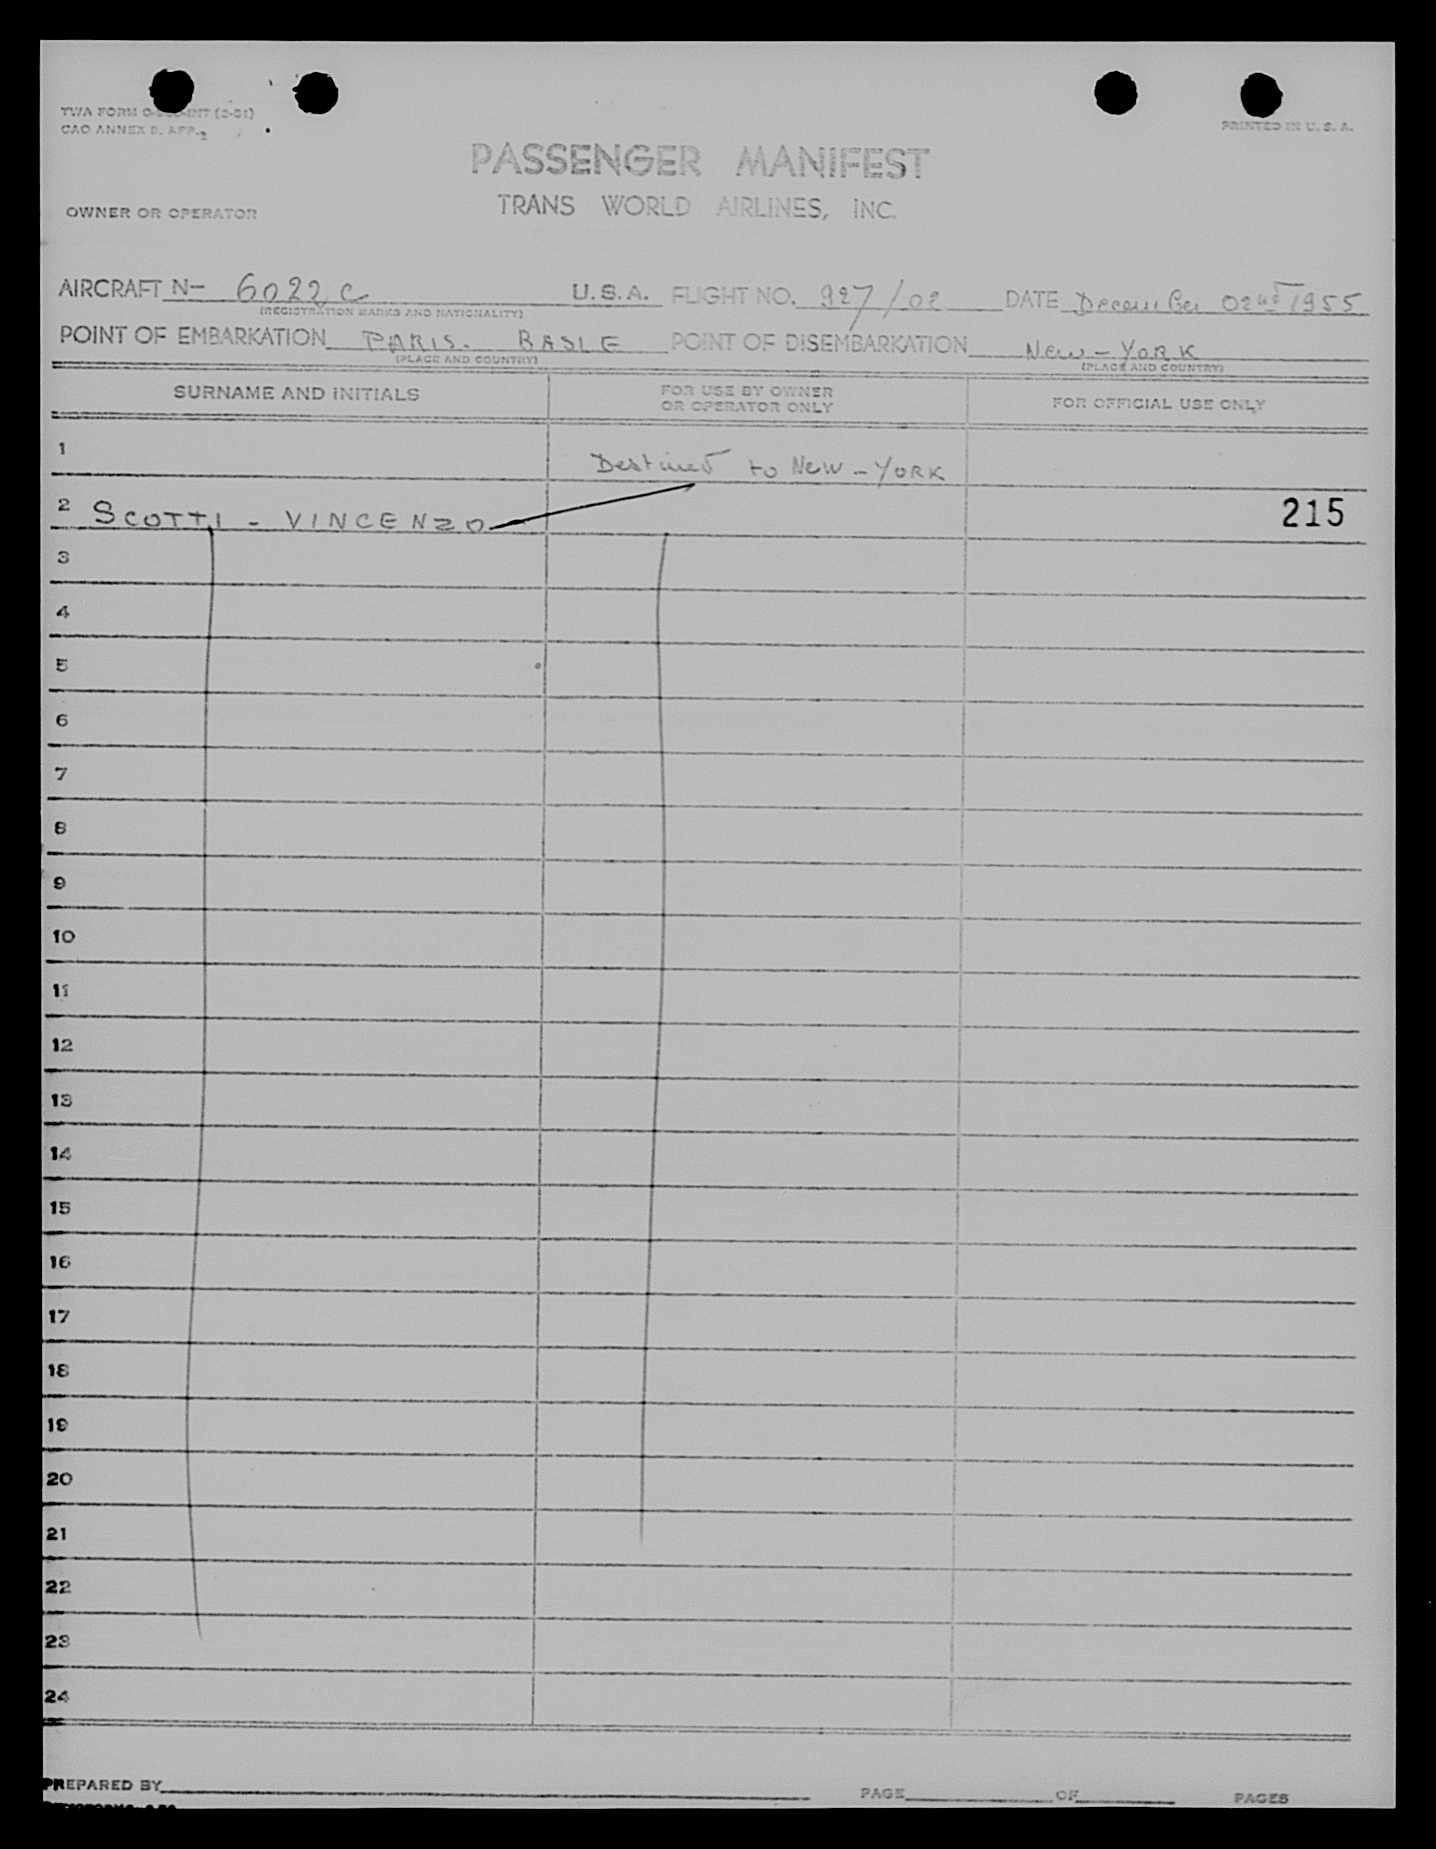 TWA FORM
PRINTED IN U. S. A.
CAO ANNEX 9, APP. 2
PASSENGER MANIFEST
OWNER OR OPERATOR
TRANS WORLD AIRLINES, INC.
AIRCRAFT N- 6022 C U.S.A. FLIGHT NO. 927/02 DATE December 02nd 1955
(REGISTRATION MARKS AND NATIONALITY)
POINT OF EMBARKATION PARIS. BASLE POINT OF DISEMBARKATION New-York
(PLACE AND COUNTRY) (PLACE AND COUNTRY)
SURNAME AND INITIALS FOR USE BY OWNER OR OPERATOR ONLY FOR OFFICIAL USE ONLY
1 Destined to New-York
2 SCOTTI - VINCENZO 215
3
4
5
6
7
8
9
10
11
12
13
14
15
16
17
18
19
20
21
22
23
24
PREPARED BY PAGE OF PAGES